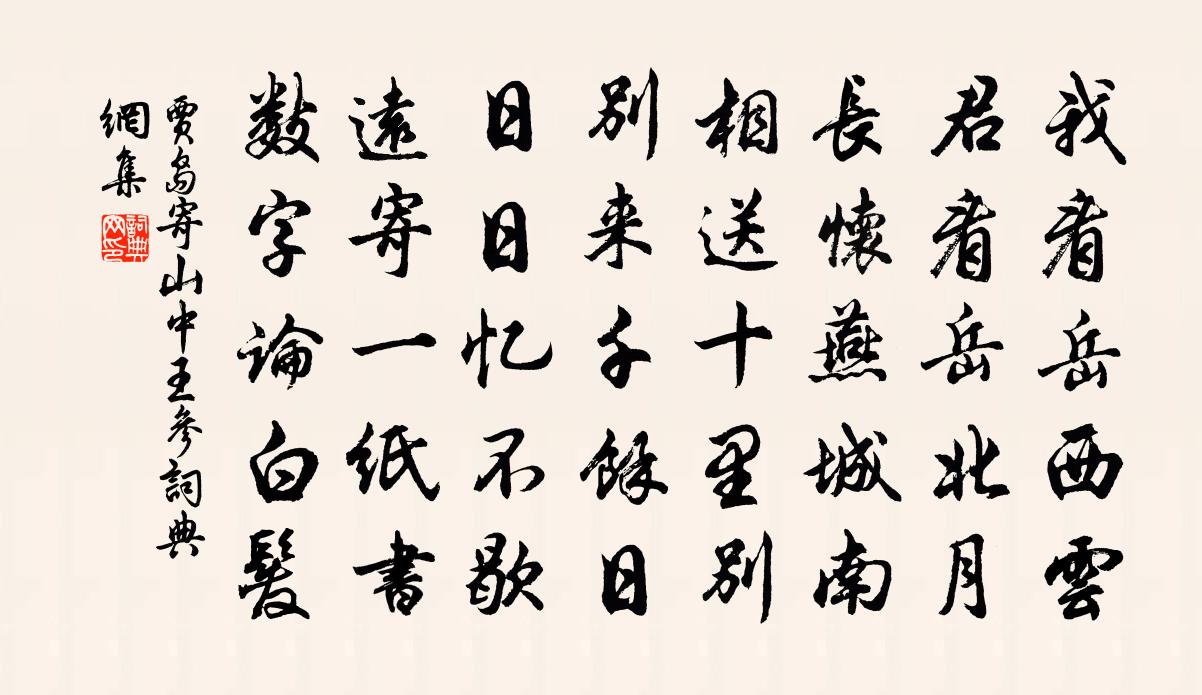 我看岳西雲
君看岳北月
長懷燕城南
相送十里別
別来千餘日
日日忆不歇
遠寄一紙書
数字論白髮
賈島寄山中王參詞典
網集
詞典
网印